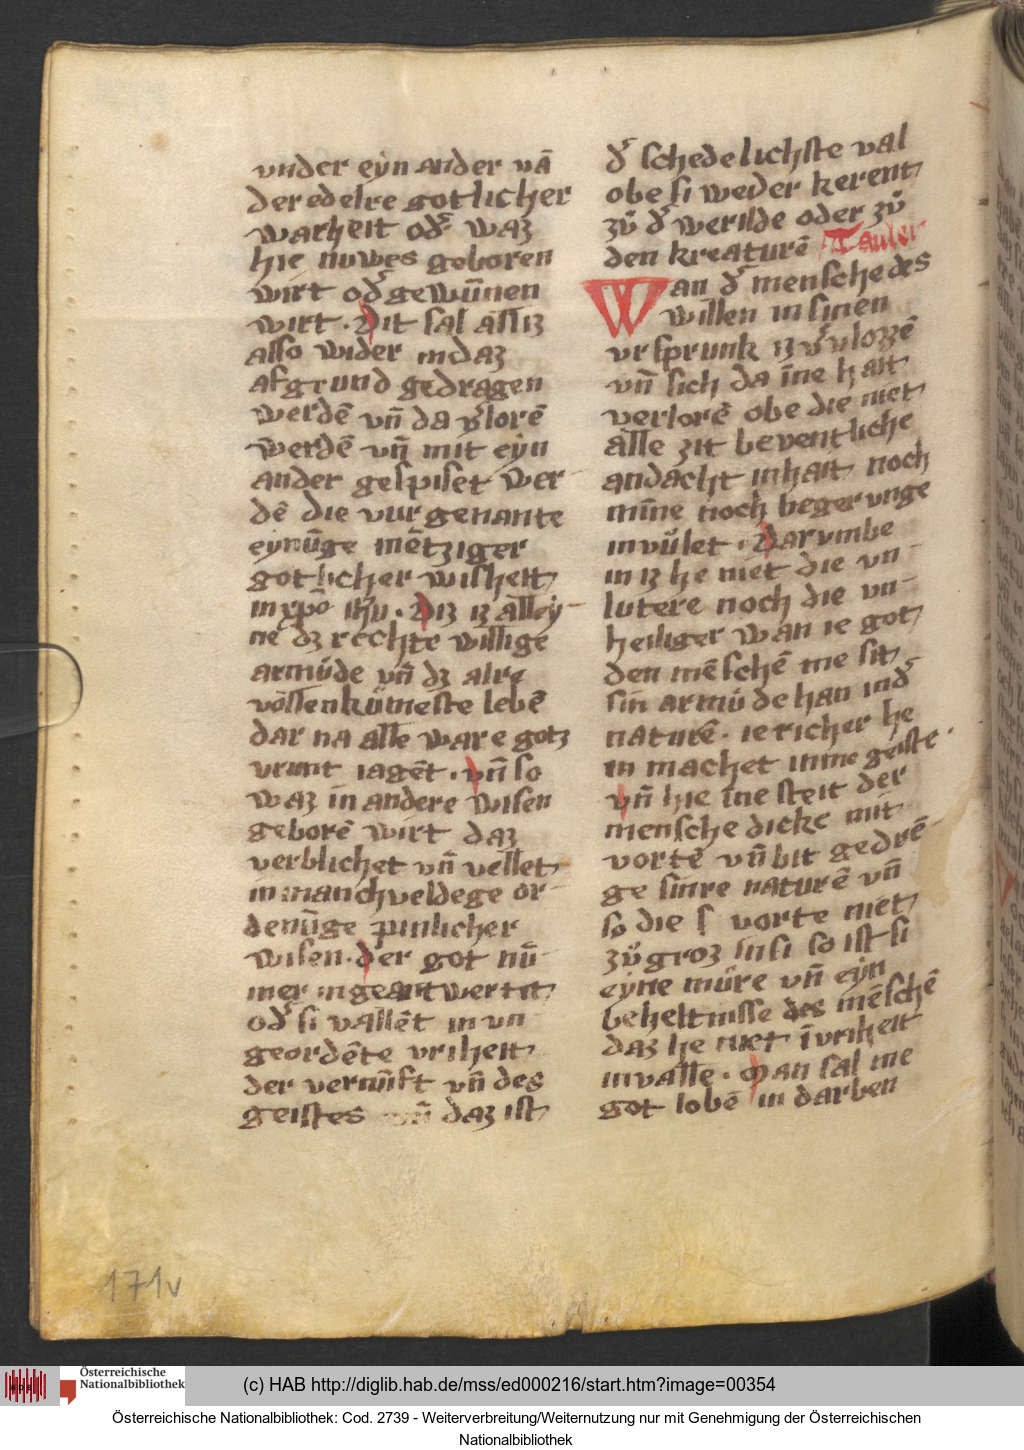 vnder eyn ander vā
der edelre gotlicher
warheit od' waz
hie nuwes geboren
wirt od' gewūnen
wirt · Dit sal allīz
also wider in daz
afgrund gedragen
werdē vn̄ da v'lorē
werdē vn̄ mit eyn
ander gespiset wer
dē die vur genante
eynūge mētziger
gotlicher wisheit
in xp̄o ih̄u · Diz iz alley
ne dz rechte willige
armůde vn̄ dz alre
vollenkūmeste lebē
dar na alle ware gotz
vrunt iagēt · vn̄ so
waz in andere wisen
geborē wirt daz
verblichet vn̄ vellet
in manchveldege or
denūge pinlicher
wisen · der got nū
mer in geantwertit
od' si vallēt in vn
geordēte vriheit
der vernūft vn̄ des
geistes vn̄ daz ist
d' schedelichste val
obe si weder kerent
zů d' werilde oder zů
den kreaturē Tauler
Wan d' mensche des
willen in sinen
vrsprunk iz v'vlozzē
vn̄ sich da īne halt
verlorē obe die niet
alle zit beventliche
andacht inhait noch
mīne noch begerunge
invůlet · Darvmbe
in iz he niet die vn
lutere noch die vn
heiliger wan ie got
den mēschē me sit
sin armůde han in d'
naturē · ie richer he
in machet inme geiste ·
vn̄ hie īne steit der
mensche dicke mit
vortē vn̄ bit gedrē
ge sinre naturē vn̄
so die s vorte niet
zůgroz in si so ist si
eyne můre vn̄ eyn
beheltnisse des mēschē
daz he niet ī vriheit
invalle · Man sal me
got lobē in darben
171v
Österreichische
Nationalbibliothek
(c) HAB http://diglib.hab.de/mss/ed000216/start.htm?image=00354
Österreichische Nationalbibliothek: Cod. 2739 - Weiterverbreitung/Weiternutzung nur mit Genehmigung der Österreichischen
Nationalbibliothek